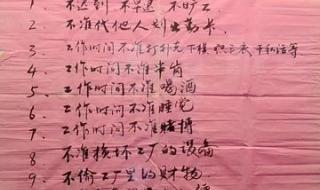 1、不迟到 不早退 不旷工
2、不准代他人划出勤卡.
3、工作时间不准打扑克 下棋
4、工作时间不准带肖
5、工作时间不准喝酒
6、工作时间不准睡觉
7、工作时间不准赌搏
8、不准损坏工厂的设备
9、不偷工厂里的财物